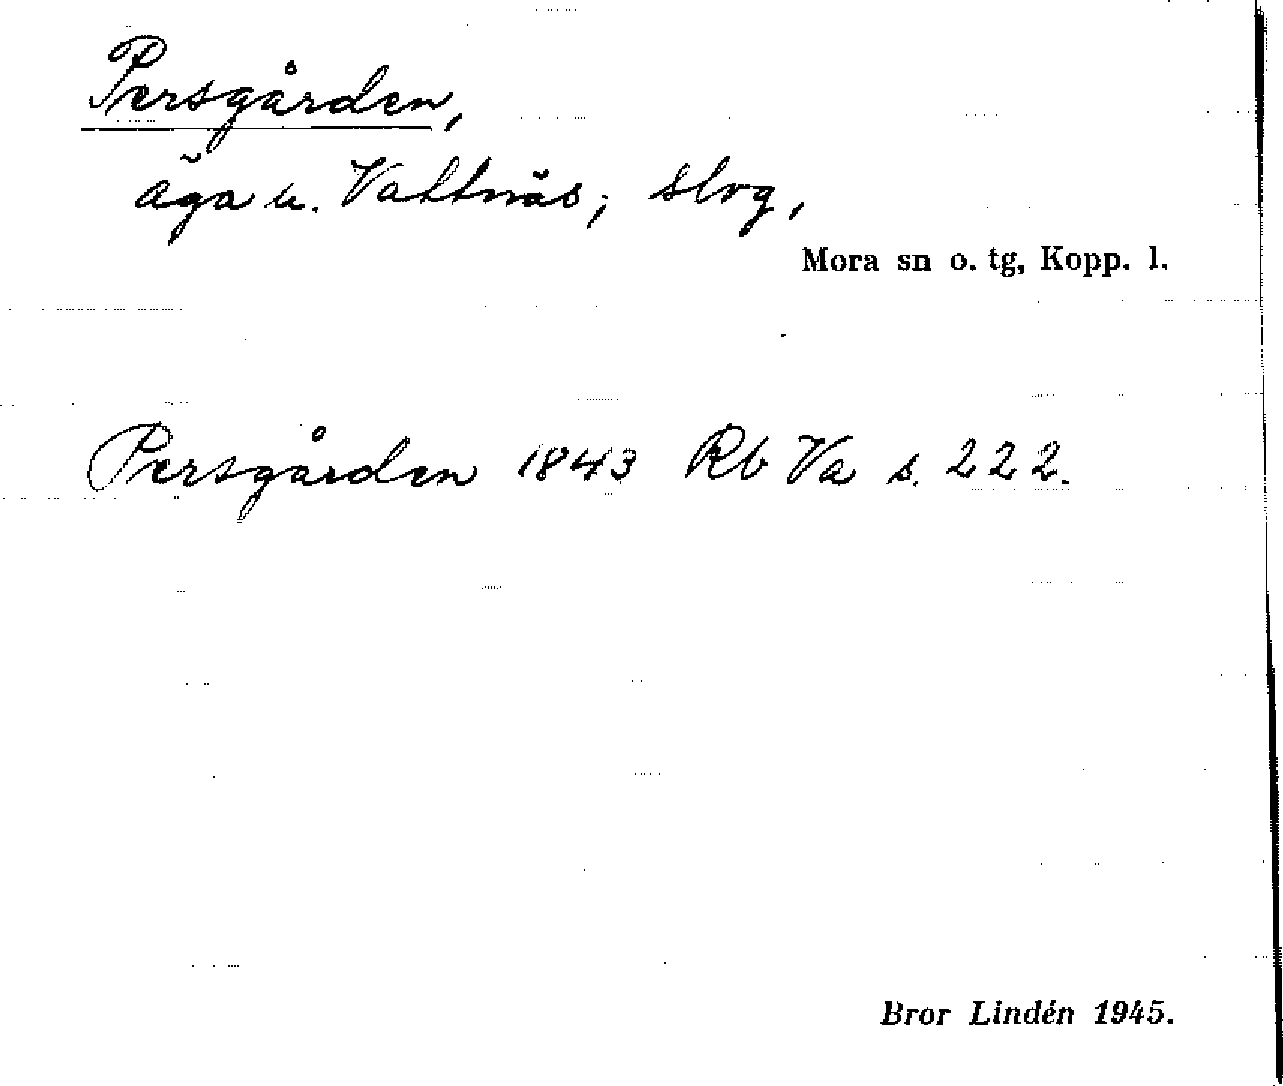 Persgården,
äga u. Vattnäs; slvg,
Mora sn o. tg, Kopp. l.
Persgården 1843 Rb Va s. 222.
Bror Lindén 1945.